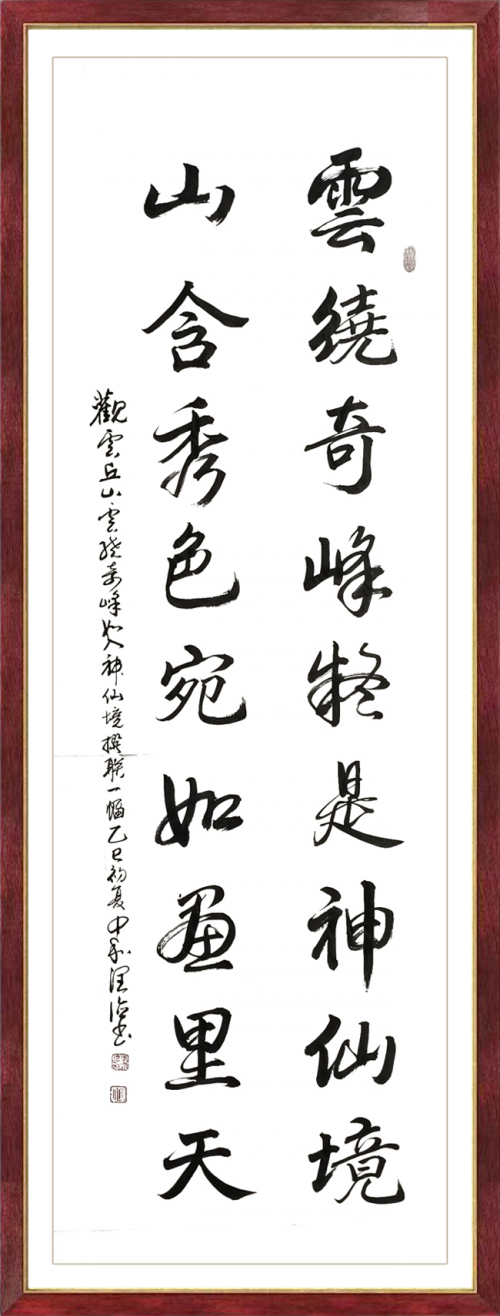 雲繞奇峰疑是神仙境
山含秀色宛如畫里天
觀雲丘山雲繞奇峰如入神仙境撰联一幅乙巳初夏中和汪治書